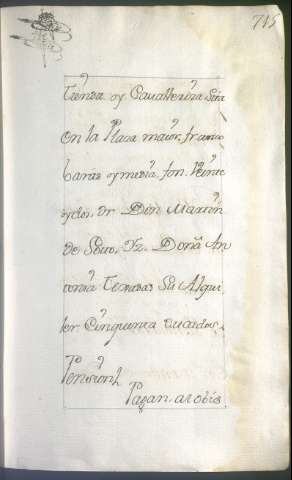 715
tienda y Cavalleriza Sita
en la Plaza maior. franco
baras y media fon. Veinte
y dos, de Don Martin
de Soto, Yz. Doña An
tonia Terazas Su Alqui
ler Cinquenta ducados,
Pension
Pagan. al obis.